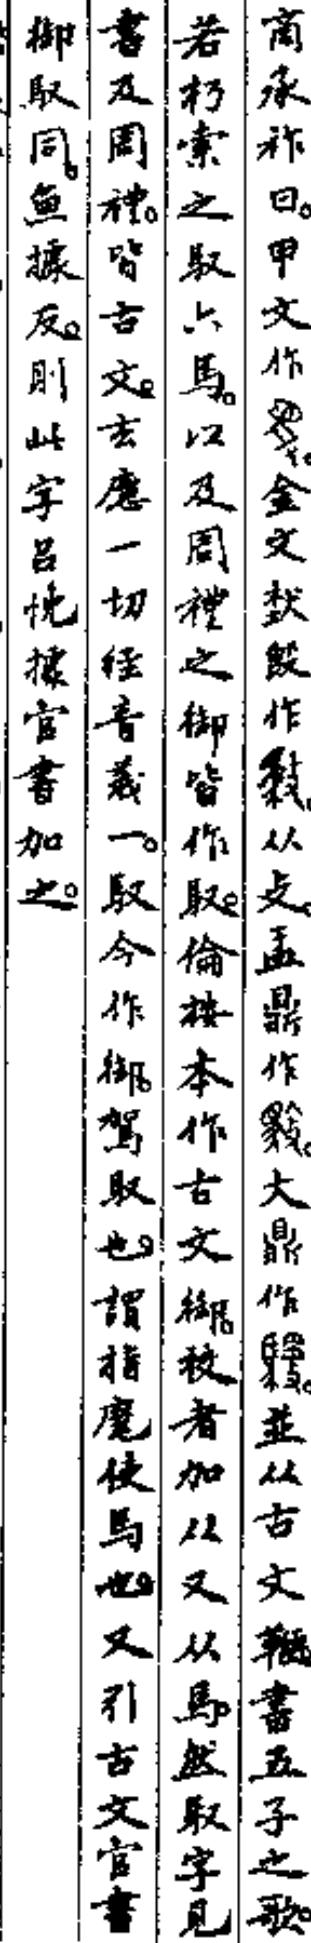 商承祚曰。甲文作。金文㝬𣪘作。从攴。盂鼎作。大鼎作。並从古文鞭。書五子之歌。
若朽索之馭六馬。以及周禮之御皆作馭。倫按本作古文御。校者加从又从馬。然馭字見
書及周禮。皆古文。玄應一切經音義一。馭今作御。駕馭也。謂指麾使馬也。又引古文官書
御馭同。魚據反。則此字呂忱據官書加之。